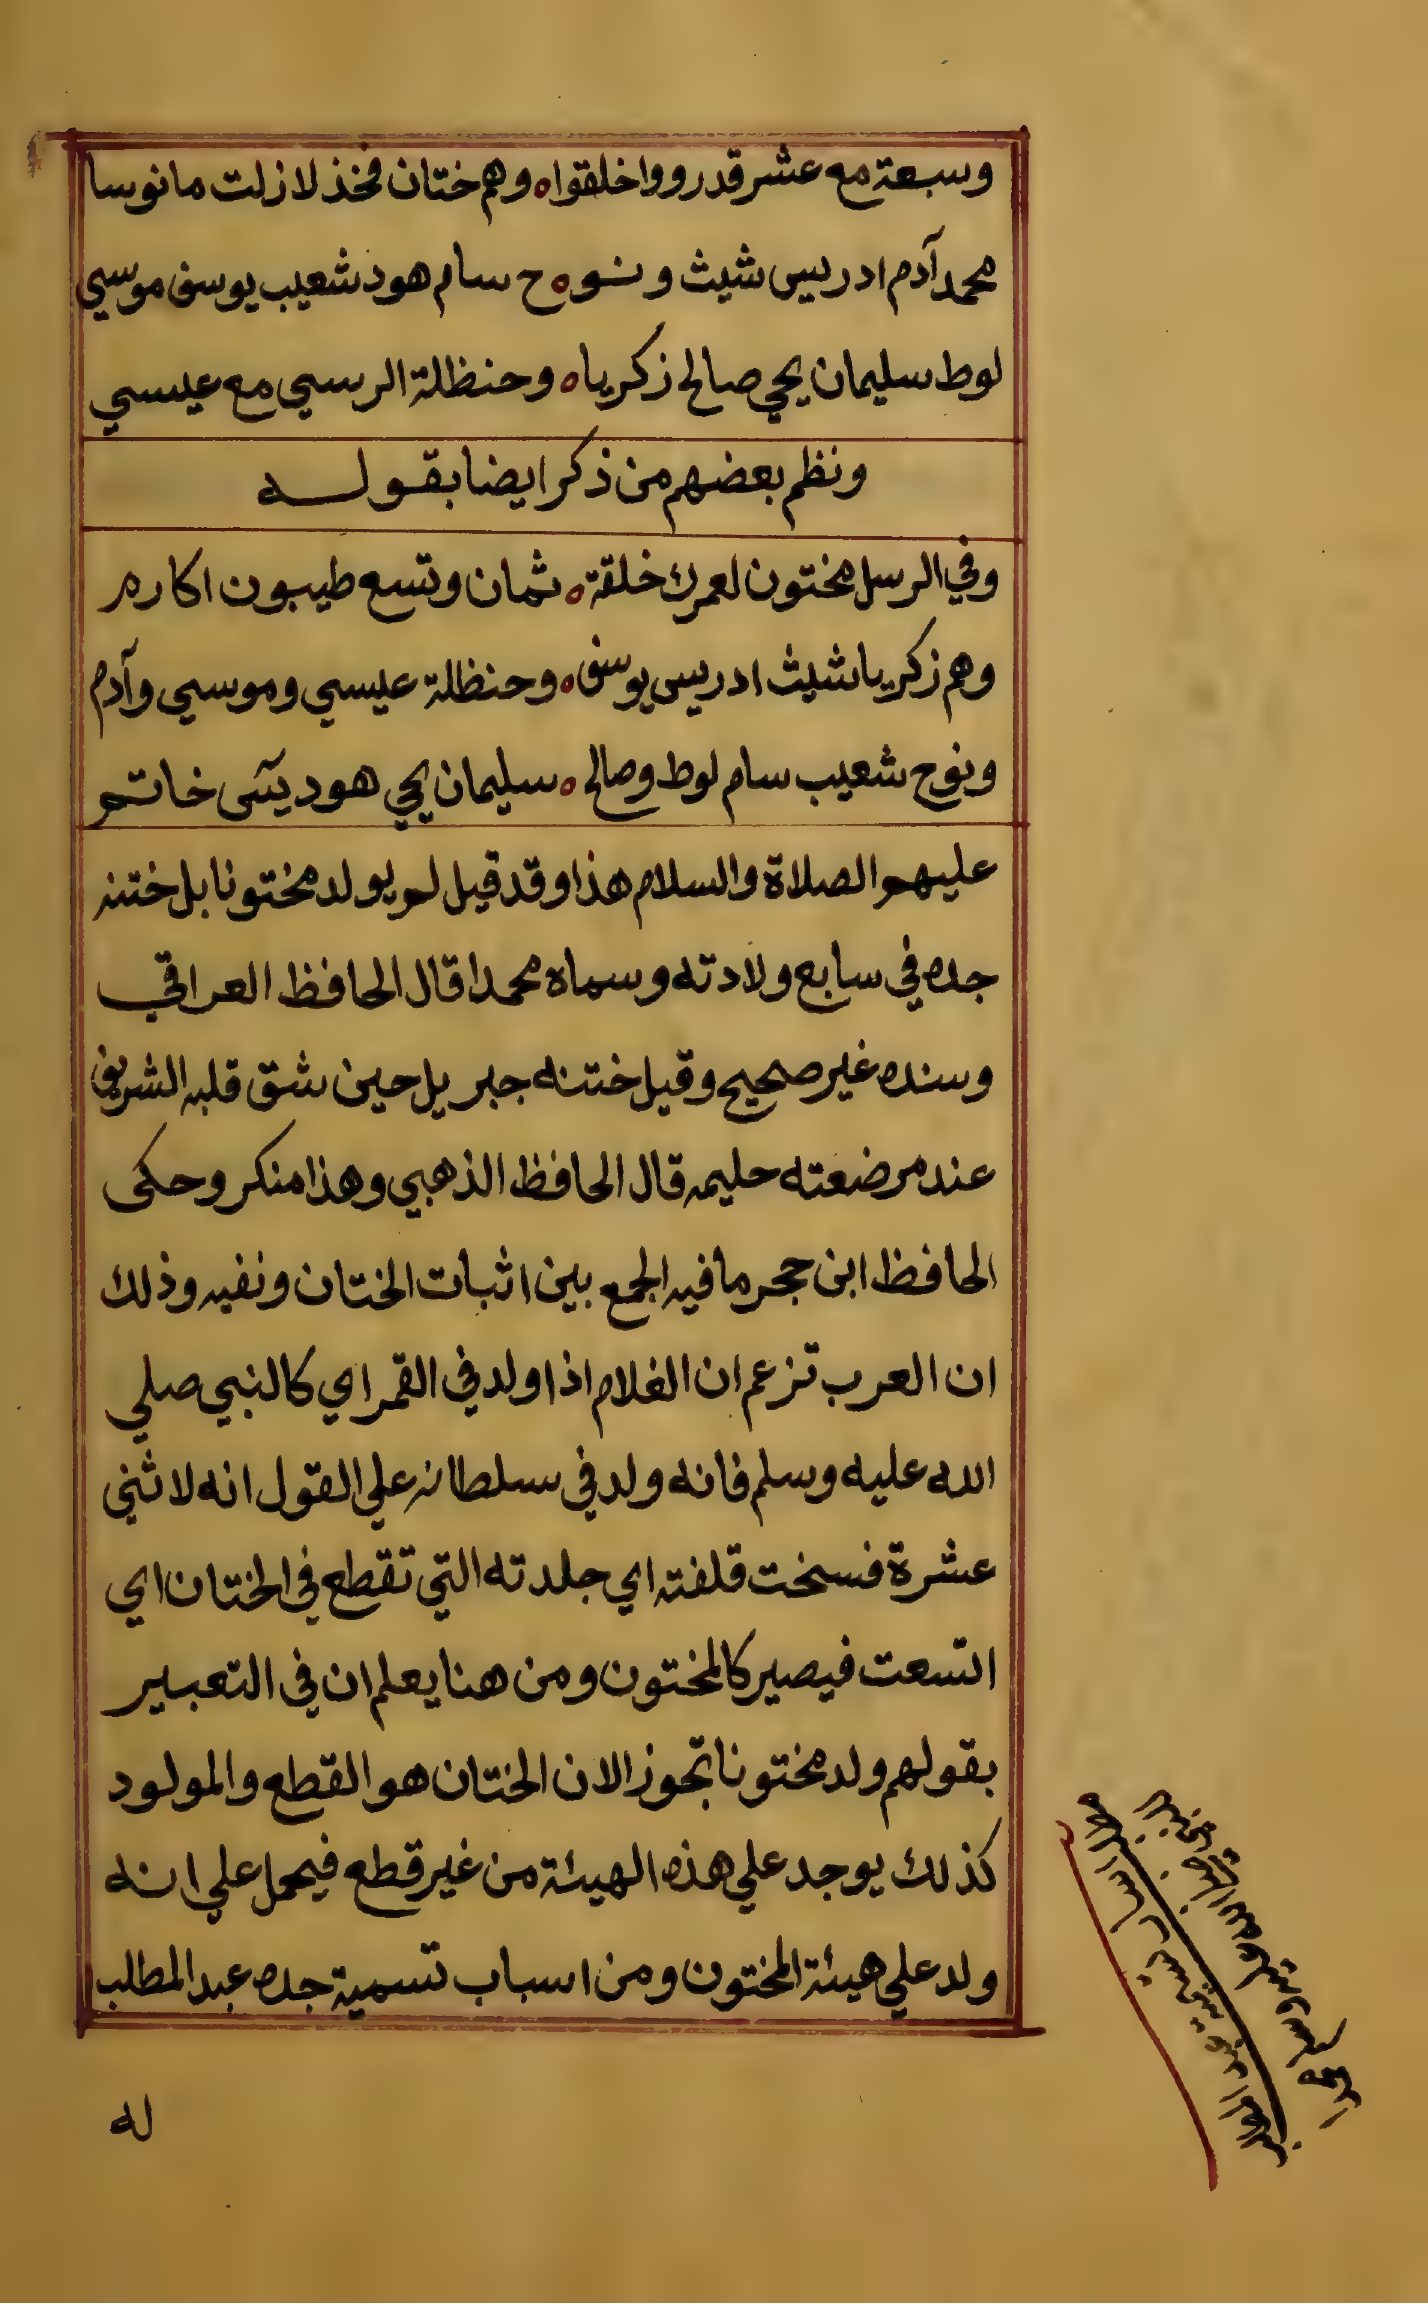 وسبعة مع عشر قد رووا خلقوا ه وهم ختان فخذ لا زلت مانوسا
محمد آدم ادريس شيث ونو ه ح سام هود شعيب يوسف موسي
لوط سليمان يحي صالح زكريا ه وحنظلة الرسي مع عيسي
ونظم بعضهم من ذكر ايضا بقوله
وفي الرسل مختون لعمرك خلقة ه ثمان وتسع طيبون اكارم
وهم زكريا شيث ادريس يوسف ه وحنظلة عيسي وموسي وآدم
ونوح شعيب سام لوط وصالح ه سليمان يحي هود يسى خاتم
عليهم الصلاة والسلام هذا وقد قيل لم يولد مختونا بل ختنه
جده في سابع ولادته وسماه محمدا قال الحافظ العراقي
وسنده غير صحيح وقيل ختنه جبريل حين شق قلبه الشريف
عند مرضعته حليمه قال الحافظ الذهبي وهذا منكر وحكى
الحافظ ابن حجر ما فيه الجمع بين اثبات الختان ونفيه وذلك
ان العرب تزعم ان الغلام اذا ولد في القمر اي كالنبي صلي
الله عليه وسلم فانه ولد في سلطانه علي القول انه لاثني
عشرة فسخت قلفته اي جلدته التي تقطع في الختان اي
اتسعت فيصير كالمختون ومن هنا يعلم ان في التعبير
بقولهم ولد مختونا تجوز الان الختان هو القطع والمولود
كذلك يوجد علي هذه الهيئة من غير قطع فيحمل علي انه
ولد علي هيئة المختون ومن اسباب تسمية جده عبد المطلب
له